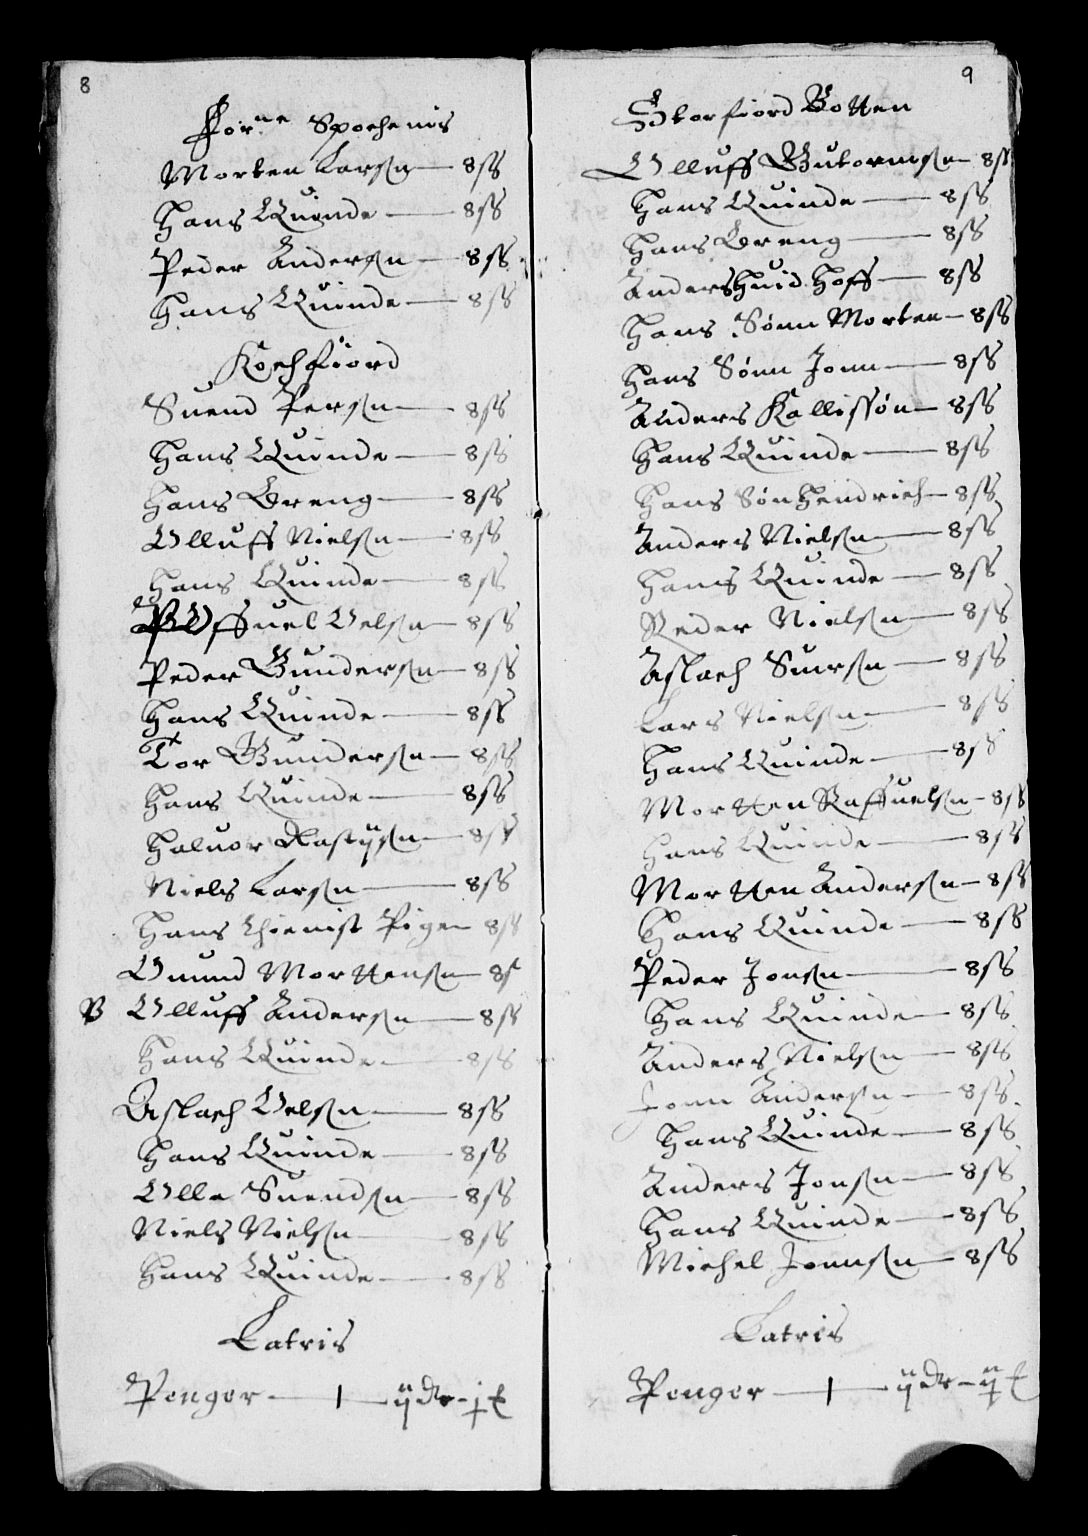 8
Sør ne Spochenis
Morten Larsn — 8 ss
Hans Quinde — 8 ss
Peder Andersn — 8 ss
Hans Quinde — 8 ss
Kochfiord
Suend Persn — 8 ss
Hans Quinde — 8 ss
Hans Dreng — 8 ss
Olluff Nielsn — 8 ss
Hans Quinde — 8 ss
Uelsn — 8 ss
Peder Gundersn — 8 ss
Hans Quinde — 8 ss
Tor Gundersn — 8 ss
Hans Quinde — 8 ss
Haluor — 8 ss
Niels Larsn — 8 ss
Hans Thienist Pige — 8 ss
Omund Morttensn — 8 s
Olluff Andersn — 8 ss
Hans Quinde — 8 ss
Aslach Uelsn — 8 ss
Hans Quinde — 8 ss
Olle Suendsn — 8 ss
Niels Nielsn — 8 ss
Hans Quinde — 8 ss
Latris
Penger — 1 — ij dr - j
9
Storfiord Botten
Olluff Gutormsn — 8 ss
Hans Quinde — 8 ss
Hans Dreng — 8 ss
Anders Huid Hoff — 8 ss
Hans Sønn Morten — 8 ss
Hans Sønn Jonn — 8 ss
Anders Kallissøn — 8 ss
Hans Quinde — 8 ss
Hans Søn Hendrich — 8 ss
Anders Nielsn — 8 ss
Hans Quinde — 8 ss
Peder Nielsn — 8 ss
Aslach Siursn — 8 ss
Lars Nielsn — 8 ss
Hans Quinde — 8 ss
Mortten Raffuelsn — 8 ss
Hans Quinde — 8 ss
Mortten Andersn — 8 ss
Hans Quinde — 8 ss
Peder Jonsn — 8 ss
Hans Quinde — 8 ss
Anders Nielsn — 8 ss
Jonn Andersn — 8 ss
Hans Quinde — 8 ss
Anders Jonsn — 8 ss
Hans Quinde — 8 ss
Michel Jonnsn — 8 ss
Latris
Penger — 1 — ij dr - ij